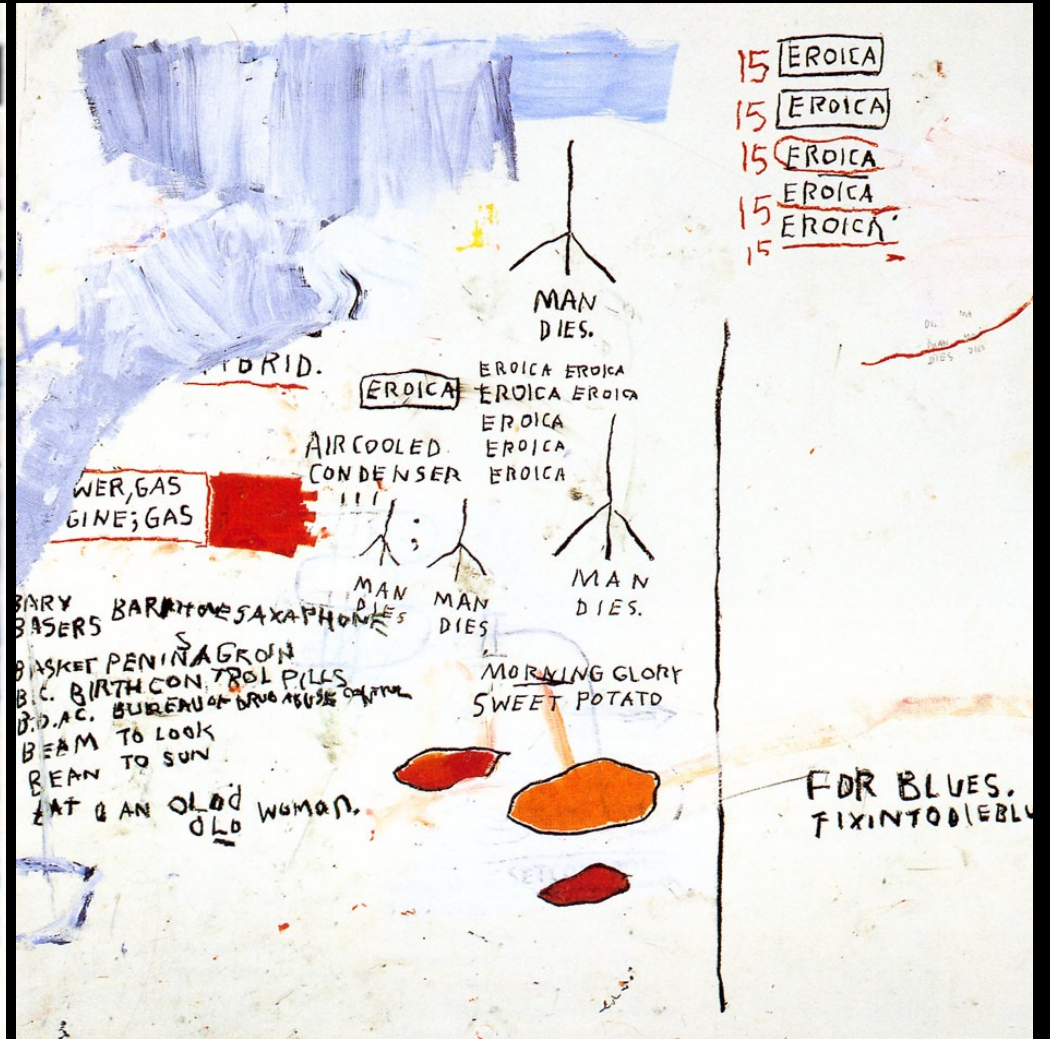 15 EROICA
15 EROICA
15 EROICA
15 EROICA
15 EROICA
MAN
DIES.
BRID.
EROICA
EROICA EROICA
EROICA EROICA
EROICA
EROICA
EROICA
AIRCOOLED
CONDENSER
WER,GAS
GINE;GAS
;
MAN
DIES
MAN
DIES
MAN
DIES.
BARY
BASERS
BASKET PENIN A GROIN
B.C. BIRTH CONTROL PILLS
B.D.AC. BUREAU OF DRUG ABUSE CONTROL
BEAM TO LOOK
BEAN TO SUN
WOMAN.
OLD
MORNING GLORY
SWEET POTATO
FOR BLUES.
FIXINTODIEBLU
MAN
DIES